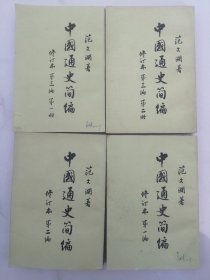 范文瀾著
中國通史简编
修订本 第三编 第一册
范文瀾著
中國通史简编
修订本 第三编 第二册
范文瀾著
中國通史简编
修订本 第二编
范文瀾著
中國通史简编
修订本 第一编